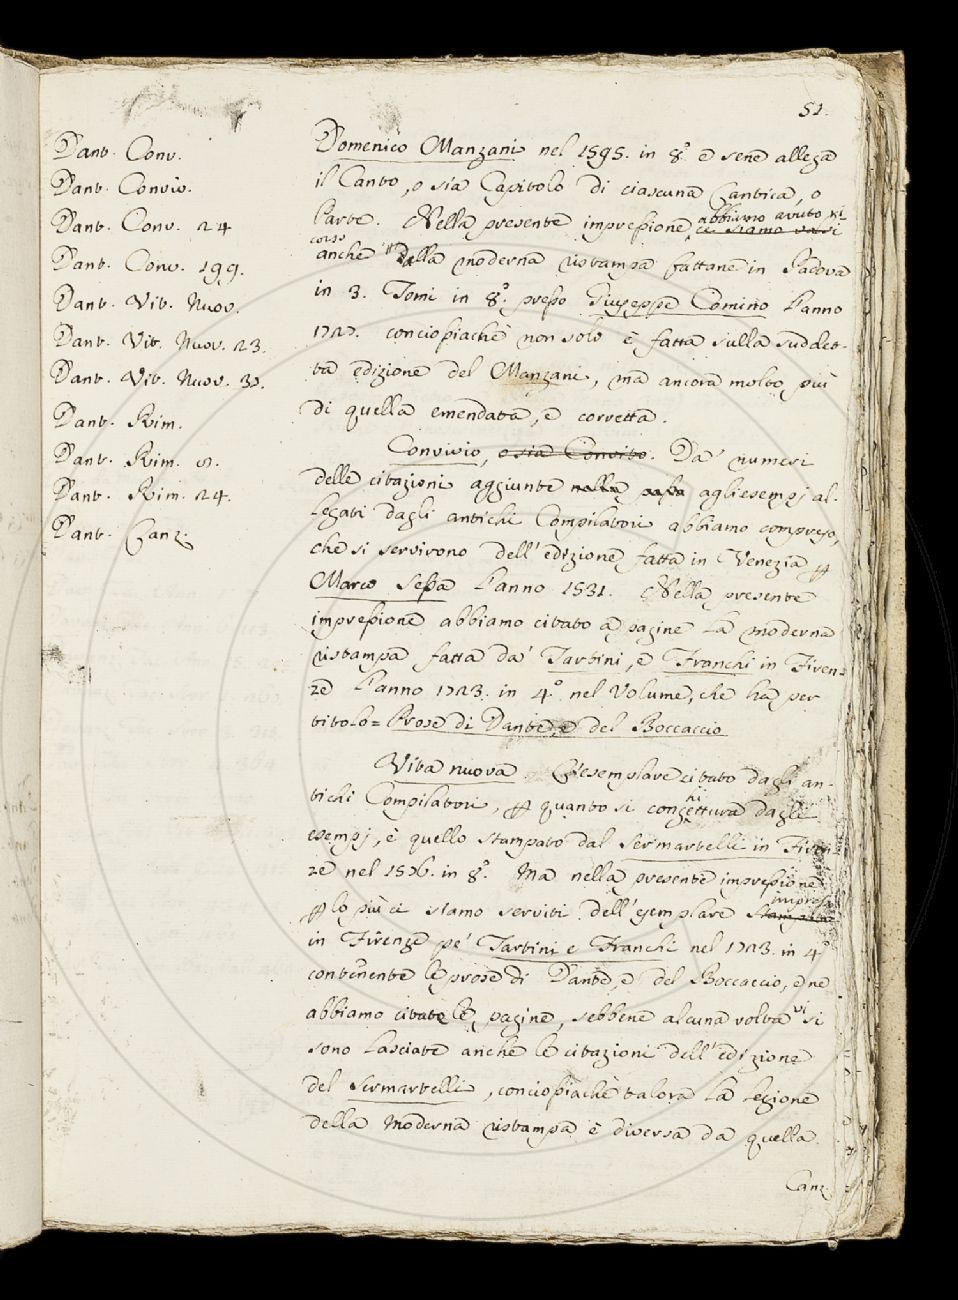 51.
Dant. Conv.
Dant. Conviv.
Dant. Conv. 24
Dant. Conv. 199.
Dant. Vit. Nuov.
Dant. Vit. Nuov. 23.
Dant. Vit. Nuov. 37.
Dant. Rim.
Dant. Rim. 7.
Dant. Rim. 24.
Dant. Canz.
Domenico Manzani nel 1595. in 8.º e sene allega
il Canto, o sia Capitolo di ciascuna Cantica, o
Parte. Nella presente impressione abbiamo avuto ri
corso
anche alla moderna ristampa fattane in Padova
in 3. Tomi in 8.º presso Giuseppe Comino l'anno
1727. conciossiachè non solo è fatta sulla suddet-
ta edizione del Manzani, ma ancora molto più
di quella emendata, e corretta.
Convivio, o sia Convito. Da' numeri
delle citazioni aggiunte nella agli esempj al-
legati dagli antichi Compilatori abbiamo compreso,
che si servirono dell'edizione fatta in Venezia p
Marco Sessa l'anno 1531. Nella presente
impressione abbiamo citato a pagine la moderna
ristampa fatta da' Tartini, e Franchi in Firen-
ze l'anno 1723. in 4.º nel Volume, che ha per
titolo = Prose di Dante, e del Boccaccio
Vita nuova L'esemplare citato dagli an-
tichi Compilatori, p quanto si conghiettura dagli
esempj, è quello stampato dal Sermartelli in Firen-
ze nel 1576. in 8.º Ma nella presente impressione
p lo più ci siamo serviti dell'esemplare stampato impresso
in Firenze pe' Tartini e Franchi nel 1723. in 4.º
contenente le prose di Dante, e del Boccaccio, e ne
abbiamo citate le pagine, sebbene alcuna volta vi si
sono lasciate anche le citazioni dell'edizione
del Sermartelli, conciossiachè talora la lezione
della moderna ristampa è diversa da quella.
Canz.